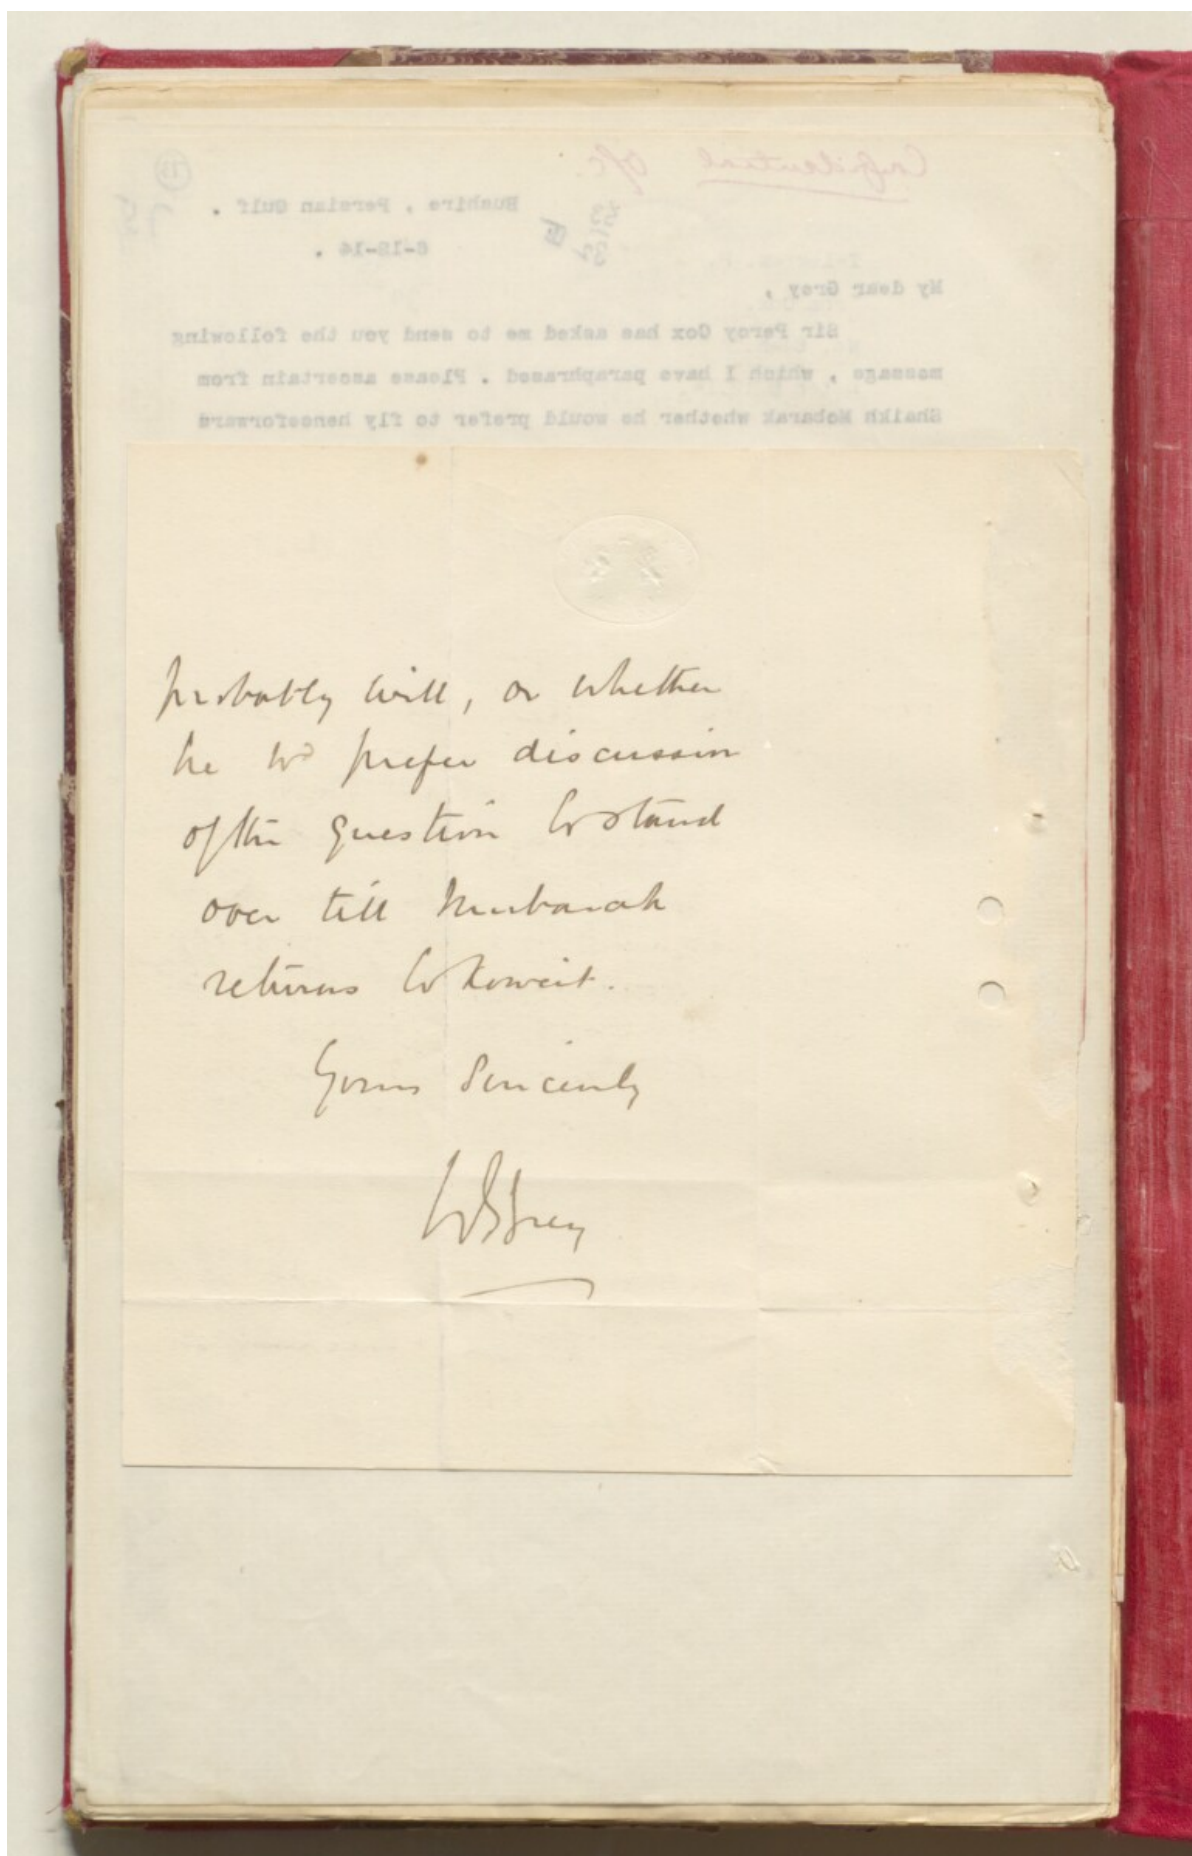 Confidential
Bushire , Persian Gulf .
My dear Grey ,
Sir Percy Cox has asked me to send you the following
message , which I have paraphrased . Please ascertain from
Shaikh Mobarak whether he would prefer to fly henceforward
probably will, or whether
he wd prefer discussion
of the question to stand
over till Mubarak
returns to Koweit.
Yours Sincerely
WGGrey